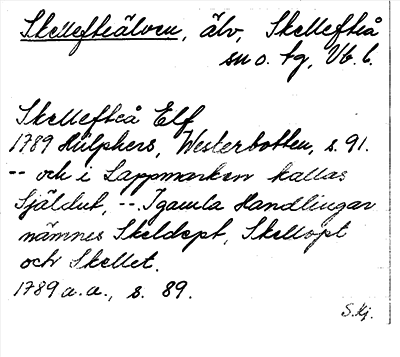 Skellefteälven, älv, Skellefteå
sn o. tg, Vb. l.
Skellefteå Elf
1789 Hülphers, Westerbotten, s. 91.
-- och i Lappmarken kallas
Själdut, -- I gamla Handlingar
nämnes Skeldept, Skellopt
och Skellet.
1789 a.a., s. 89.
S.Kj.